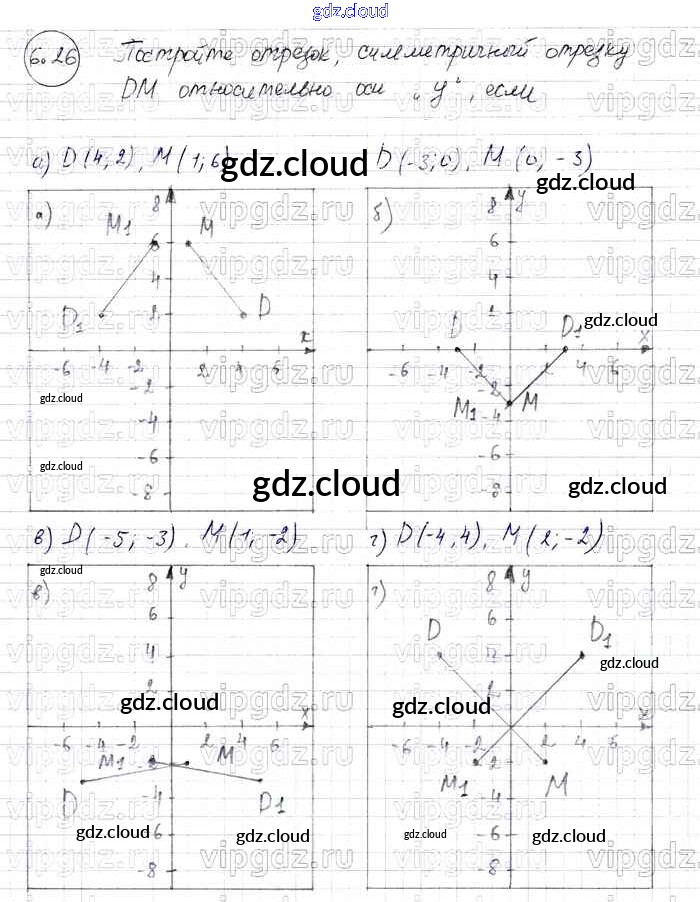 gdz.cloud
6.26 Постройте отрезок, симметричный отрезку
DM относительно оси "y", если
а) D(4;2), M(1;6) gdz.cloud D(-3;0), M(0;-3)
gdz.cloud
а) 8 M1 6 M
4
D1 2 D
x
-6 -4 -2 2 4 6
-2
-4
-6
-8
gdz.cloud
gdz.cloud
б) 8 y
6
4
2
D D1 gdz.cloud
x
-6 -4 -2 2 4 6
-2
M1 -4 M
-6
-8
gdz.cloud
gdz.cloud
в) D(-5;-3), M(1;-2) г) D(-4,4), M(2;-2)
gdz.cloud
в) 8 y
6
4
2
gdz.cloud
x
-6 -4 -2 2 4 6
M1 -2 M
D -4 D1
gdz.cloud 6
gdz.cloud
-8
г) 8 y
D 6 D1
gdz.cloud
2
gdz.cloud
x
-6 -4 -2 2 4 6
-2
M1 -4 M
gdz.cloud -6 gdz.cloud
-8
vipgdz.ru